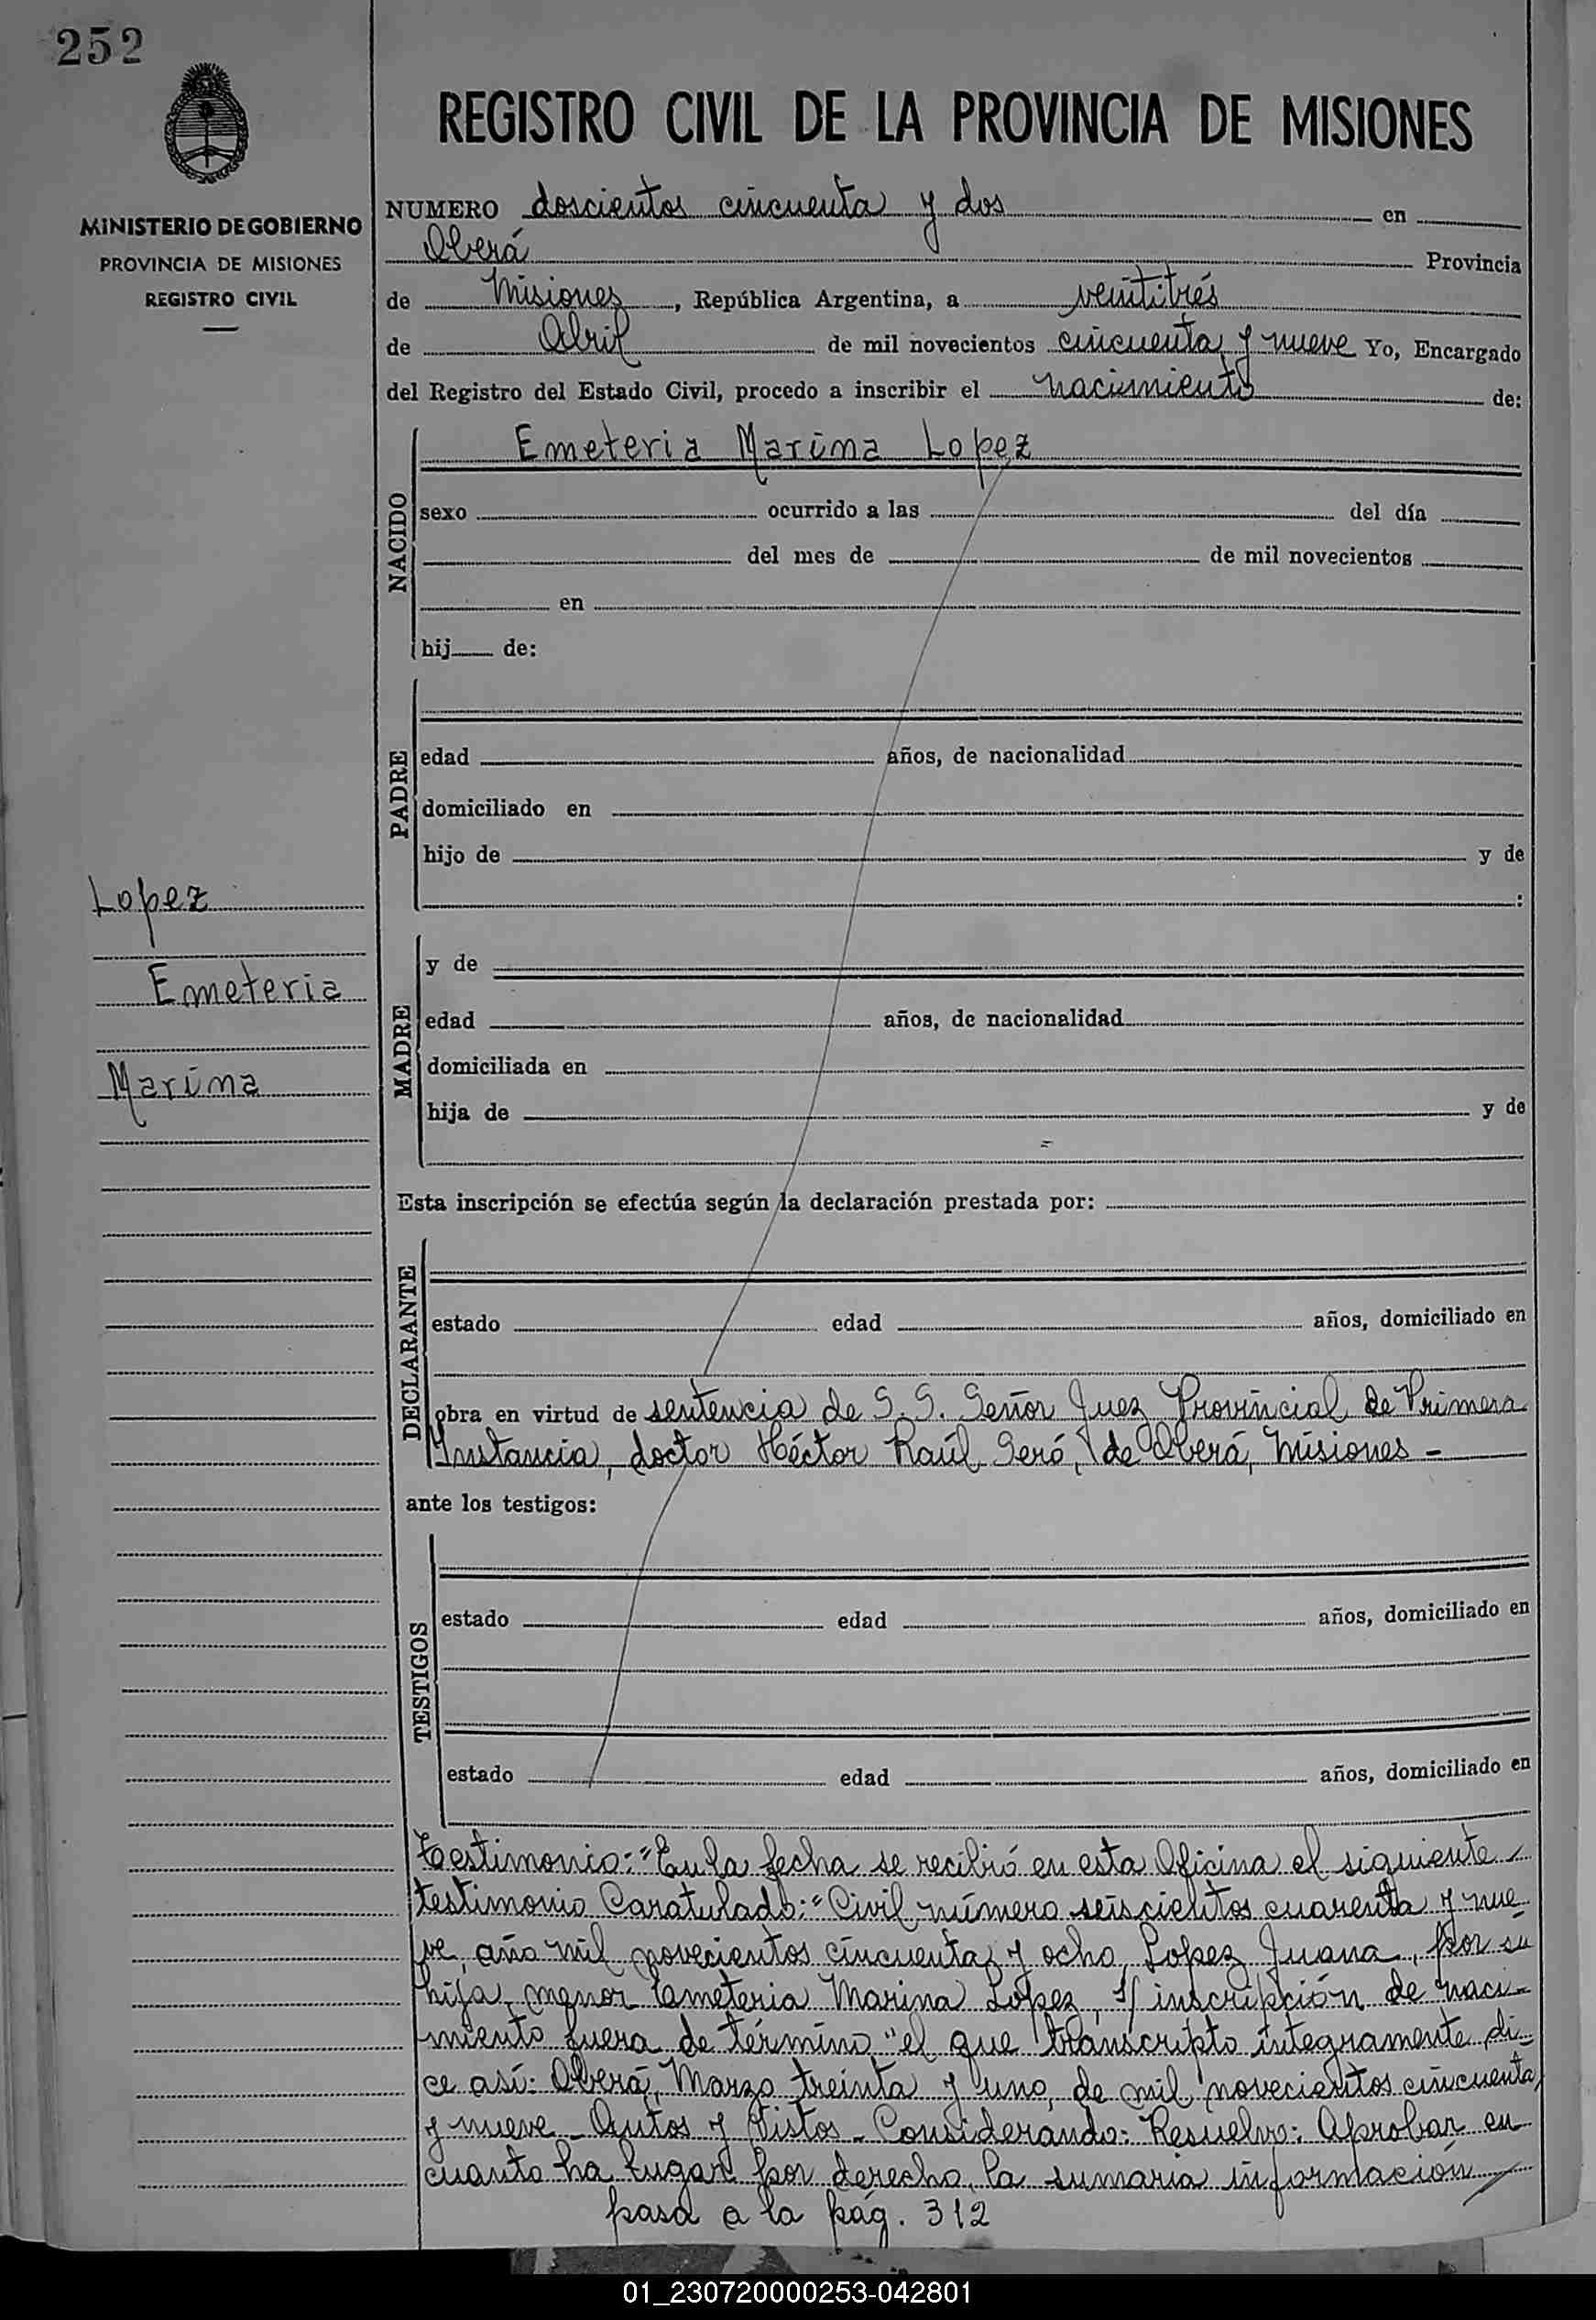 252
REGISTRO CIVIL DE LA PROVINCIA DE MISIONES
MINISTERIO DE GOBIERNO
PROVINCIA DE MISIONES
REGISTRO CIVIL
NUMERO doscientos cincuenta y dos en
Oberá Provincia
de Misiones, República Argentina, a veintitrés
de Abril de mil novecientos cincuenta y nueve Yo, Encargado
del Registro del Estado Civil, procedo a inscribir el nacimiento de:
NACIDO
Emeteria Marina Lopez
sexo ocurrido a las del día
del mes de de mil novecientos
en
hij de:
PADRE
edad años, de nacionalidad
domiciliado en
hijo de y de
:
Lopez
Emeteria
Marina
MADRE
y de
edad años, de nacionalidad
domiciliada en
hija de y de
Esta inscripción se efectúa según la declaración prestada por:
DECLARANTE
estado edad años, domiciliado en
obra en virtud de sentencia de S. S. Señor Juez Provincial de Primera
Instancia, doctor Héctor Raúl Seró, de Oberá, Misiones -
ante los testigos:
TESTIGOS
estado edad años, domiciliado en
estado edad años, domiciliado en
Testimonio: "En la fecha se recibió en esta Oficina el siguiente
testimonio Caratulado: "Civil número seiscientos cuarenta y nue-
ve, año mil novecientos cincuenta y ocho, Lopez Juana, por su
hija menor Emeteria Marina Lopez, s/ inscripción de naci-
miento fuera de término" el que transcripto integramente di-
ce así: Oberá, Marzo treinta y uno, de mil novecientos cincuenta
y nueve - Autos y Vistos - Considerando: Resuelvo: Aprobar en
cuanto ha lugar por derecho, la sumaria información
pasa a la pág. 312
01_230720000253-042801